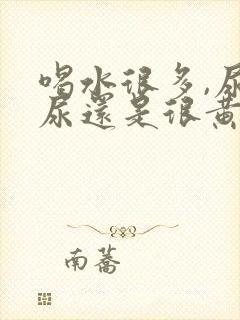 喝水很多,尿
尿還是很黃
南蕎